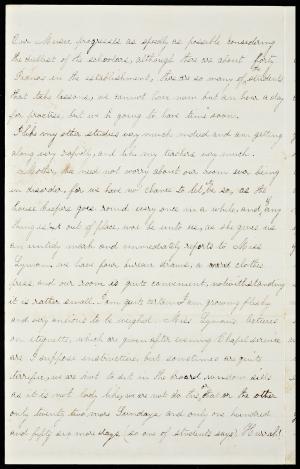 Our Music progresses as speedy as possible considering
the dullest of the scholars, although there are about forty
Pianos in the establishment, there are so many of the students
that take lessons, we cannot have more but an hour a day
for practice, but we is going to have "time" soon.
I like my other studies very much indeed and am getting
along very rapidly, and like my teachers very much.
Mother, thee need not worry about our room ever being
in disorder, for we have no chance to let it be so, as the
house keeper goes round every once in a while, and if any
thing is out of place, woe be unto us, as she gives us
an untidy mark and immediately reports to Miss
Lyman. we have four bureau draws, a ward clothes
press and our room is quite convenient, notwithstanding
it is rather small. I am quite certain I am growing fleshy
and very anxious to be weighed. Miss Lyman's lectures
on etiquette, which are given after evening Chapel service
are I suppose instructive, but sometimes are quite
terrific, we are not to sit in the broad window sills
as it is not lady like, we are not to do this that or the other
only twenty two more Sundays and only one hundred
and fifty six more days (so one of students says) Hurrah!